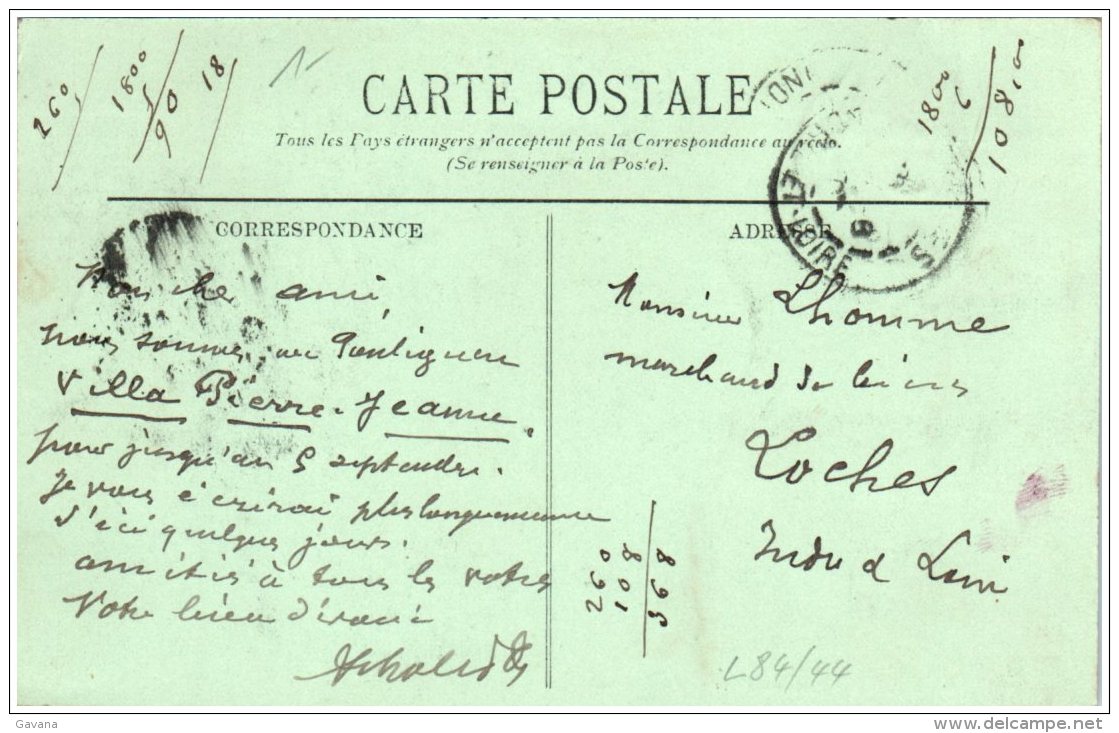 260
1800
5
90
18
1
CARTE POSTALE
Tous les Pays étrangers n'acceptent pas la Correspondance au recto.
(Se renseigner à la Poste).
1800
6
108,00
ET-LOIRE
CORRESPONDANCE
Mon cher ami
nous sommes au Pouliguen
Villa Pierre-Jeanne.
pour jusqu'au 5 septembre.
Je vous écrirai plus longuement
d'ici quelques jours.
amitiés à tous les votres
Votre bien dévoué
ADRESSE
Monsieur Lhomme
marchand de
Loches
Indre & Loire
260
108
368
L84/44
Gavana
www.delcampe.net